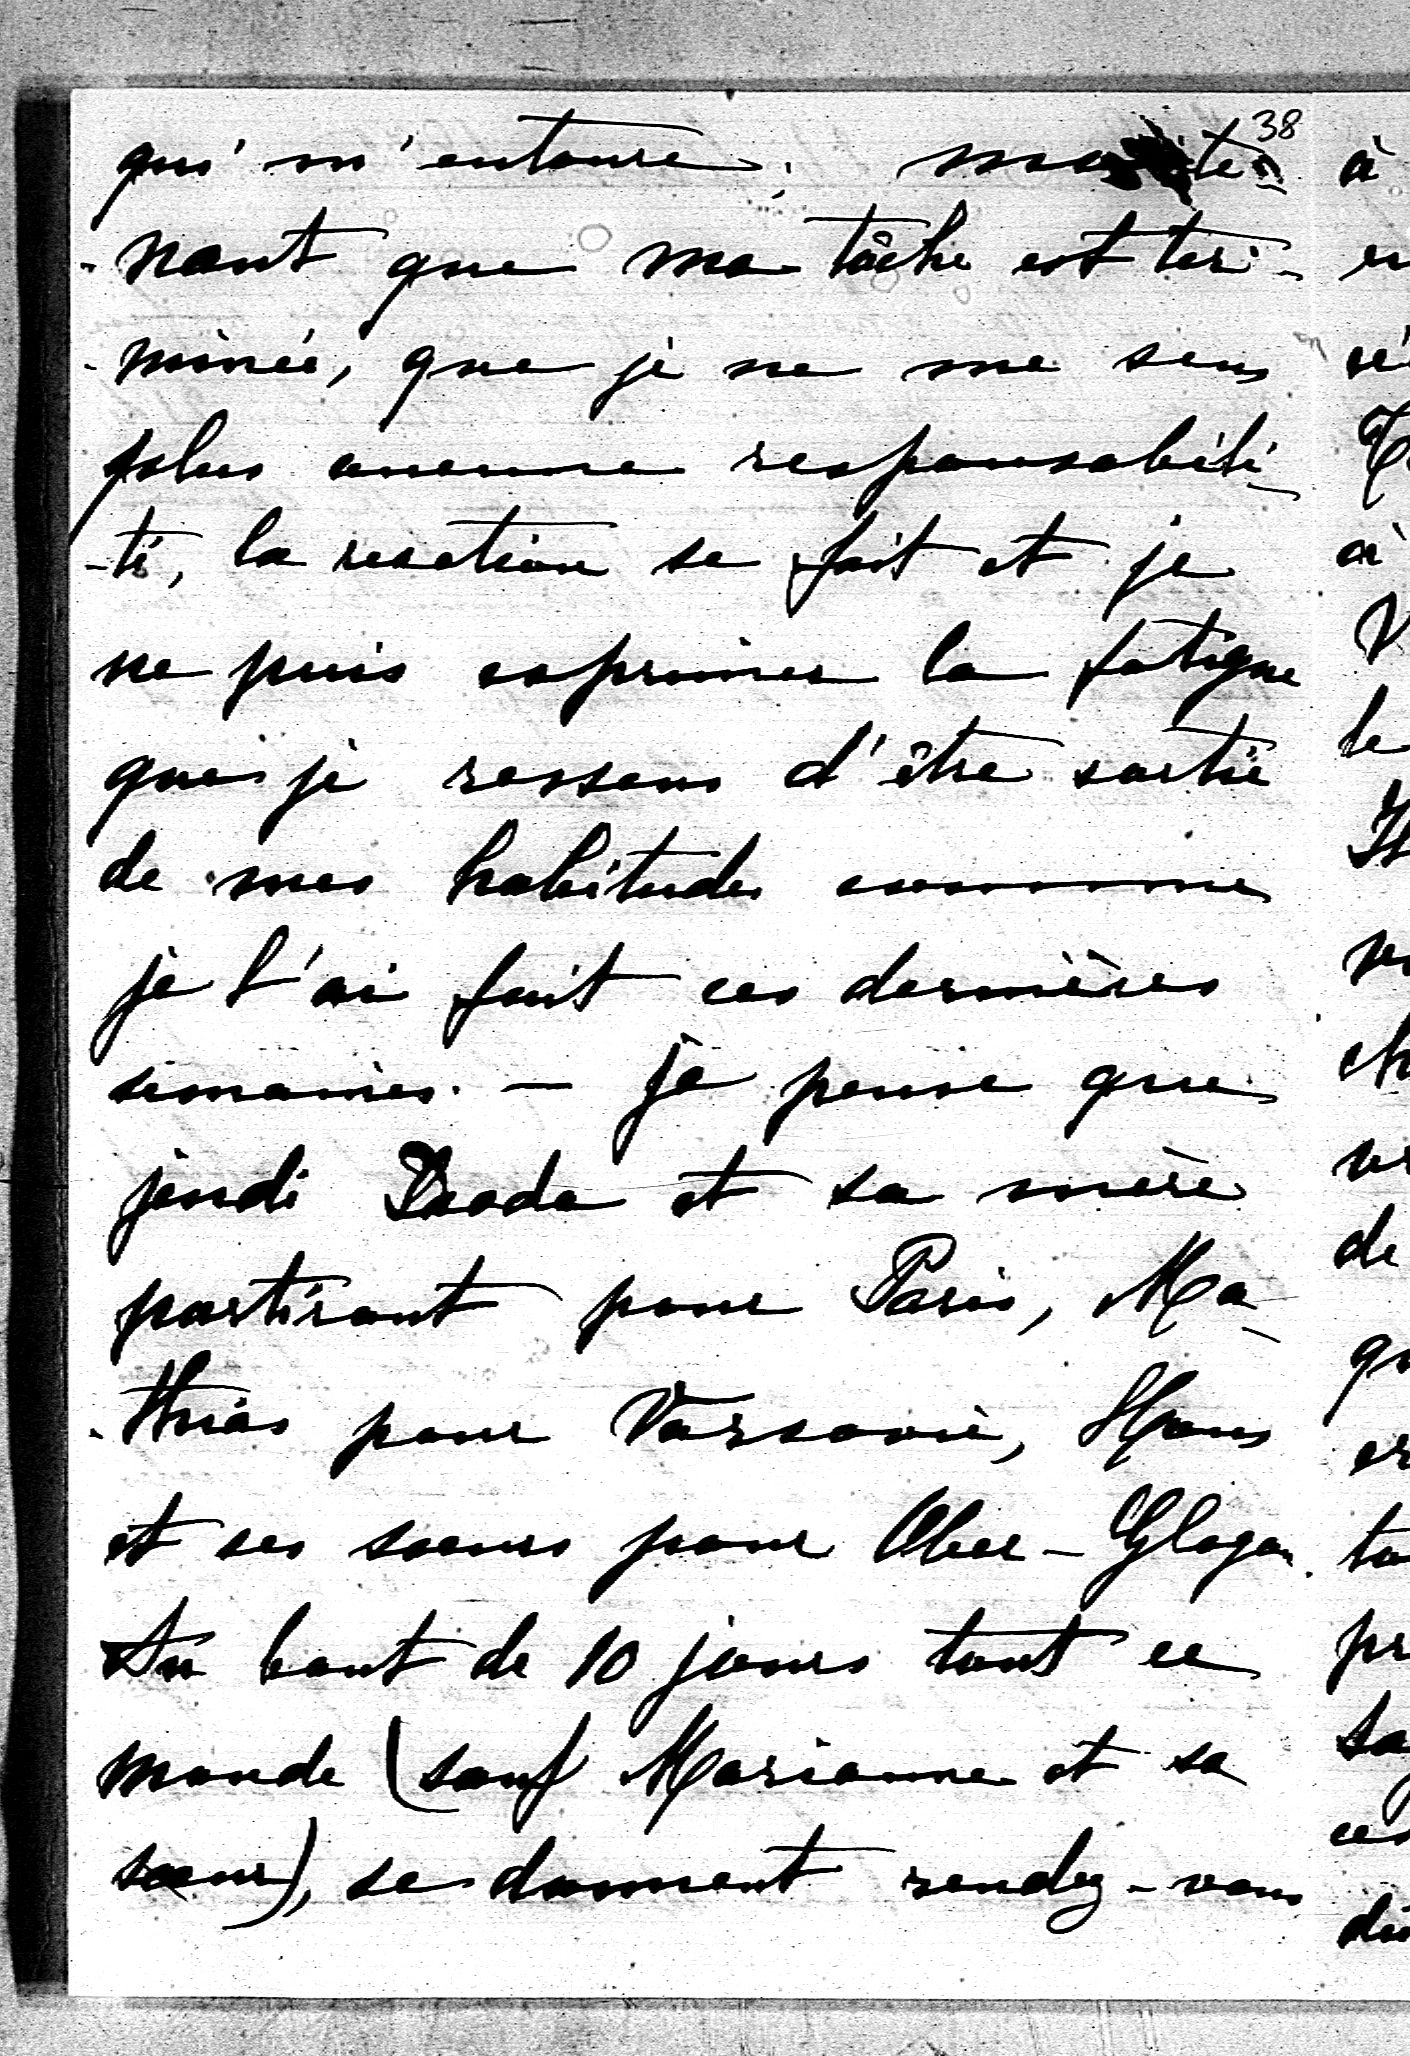 38
qui m'entoure; mainte-
-nant que ma tâche est ter-
-minée, que je ne me sens
plus aucune responsabili-
-té, la reaction se fait et je
ne puis exprimer la fatigue
que je ressens d'être sortie
de mes habitudes comme
je l'ai fait ces dernières
semaines. — Je pense que
jeudi et sa mère
partiront pour Paris, Ma-
-thias pour Varsovie, Hans
et ses soeurs pour Ober-Glogau.
Au bout de 10 jours tout ce
monde (sauf Marianne et sa
soeur), se donnent rendez-vous